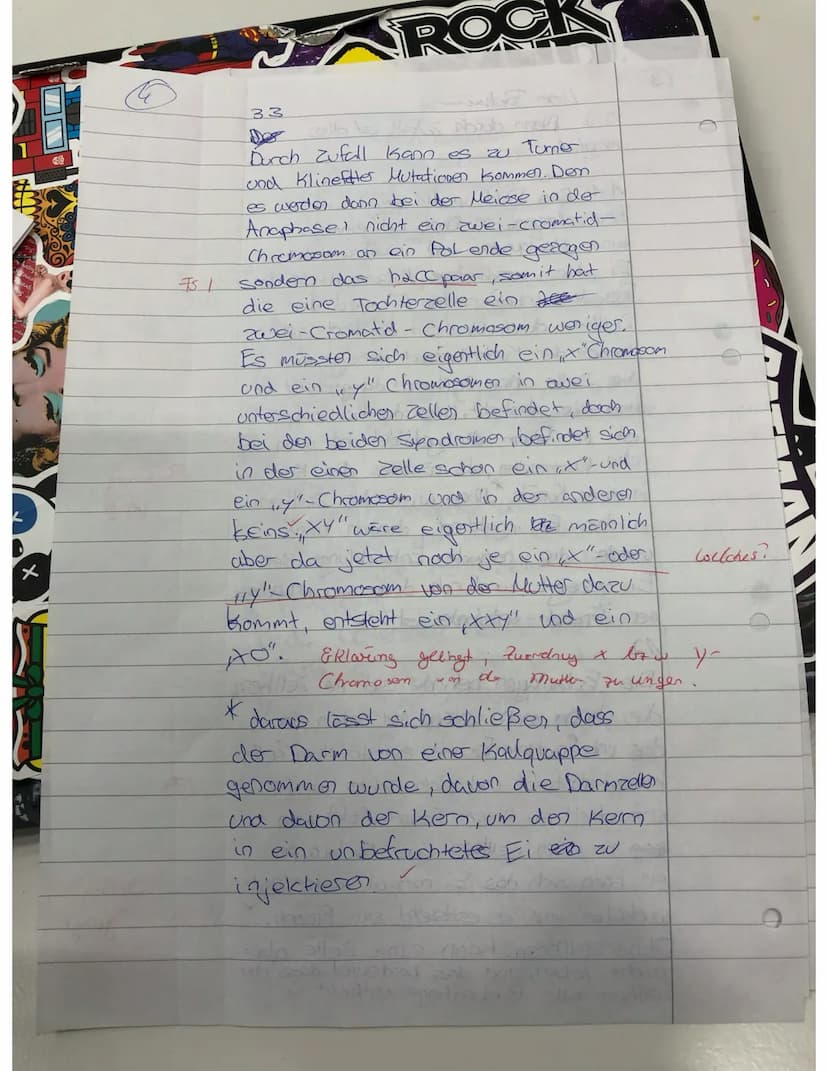 ROCK
4
33
Durch Zufall kann es zu Turner
und Kline Mutationen kommen. Den
es werden dann bei der Meiose in der
Anaphase 1 nicht ein zwei-cromatid-
Chromosom an ein Pol ende gezogen
Fs 1 sondern das paar, somit hat
die eine Tochterzelle ein
zwei-Cromatid-Chromosom weniger.
Es müssten sich eigentlich ein „x" Chromosom
und ein „y" Chromosomen in zwei
unterschiedlichen Zellen befindet, doch
bei den beiden Syndromen, befindet sich
in der einen Zelle schon ein „x"-und
ein „y"-Chromosom und in der anderen
keins. „XY" wäre eigentlich männlich
aber da jetzt noch je ein „x"-oder welches?
„y"-Chromosom von der Mutter dazu
kommt, entsteht ein „XXY" und ein
„XO". Erklärung gelingt, Zuordnug x bzw y-
Chromosom von der Mutter zu ungen.
* daraus lässt sich schließen, dass
der Darm von einer Kaulquappe
genommen wurde, davon die Darmzellen
und davon der Kern, um den Kern
in ein unbefruchtetes Ei zu
injektieren